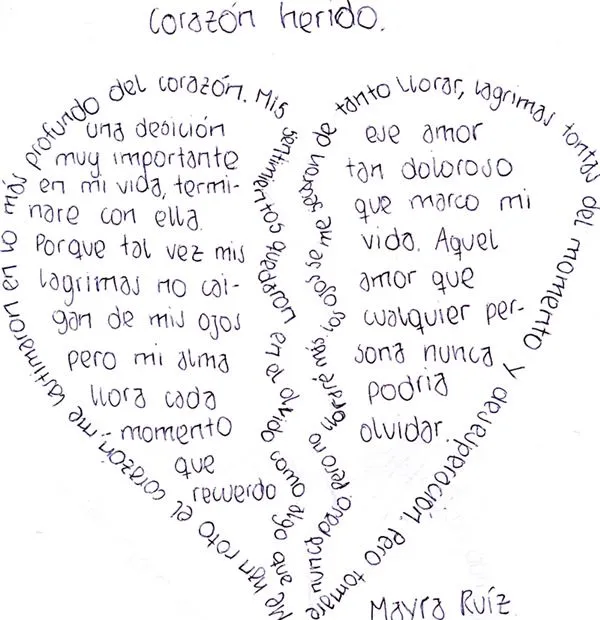 corazón herido.
Me han roto el corazón, me lastimaron en lo más profundo del corazón. Mis
sentimietos quedaron en olvido como algo que
nunca paso, pero no lloraré más, ojos se me secaron de
tanto llorar, lagrimas tontas del momento y desesperación. Pero tomare
una desición
muy importante
en mi vida, termi-
nare con ella.
Porque tal vez mis
lagrimas no cai-
gan de mis ojos
pero mi alma
llora cada
momento
que
recuerdo
ese amor
tan doloroso
que marco mi
vida. Aquel
amor que
cualquier per-
sona nunca
podria
olvidar.
Mayra Ruíz.